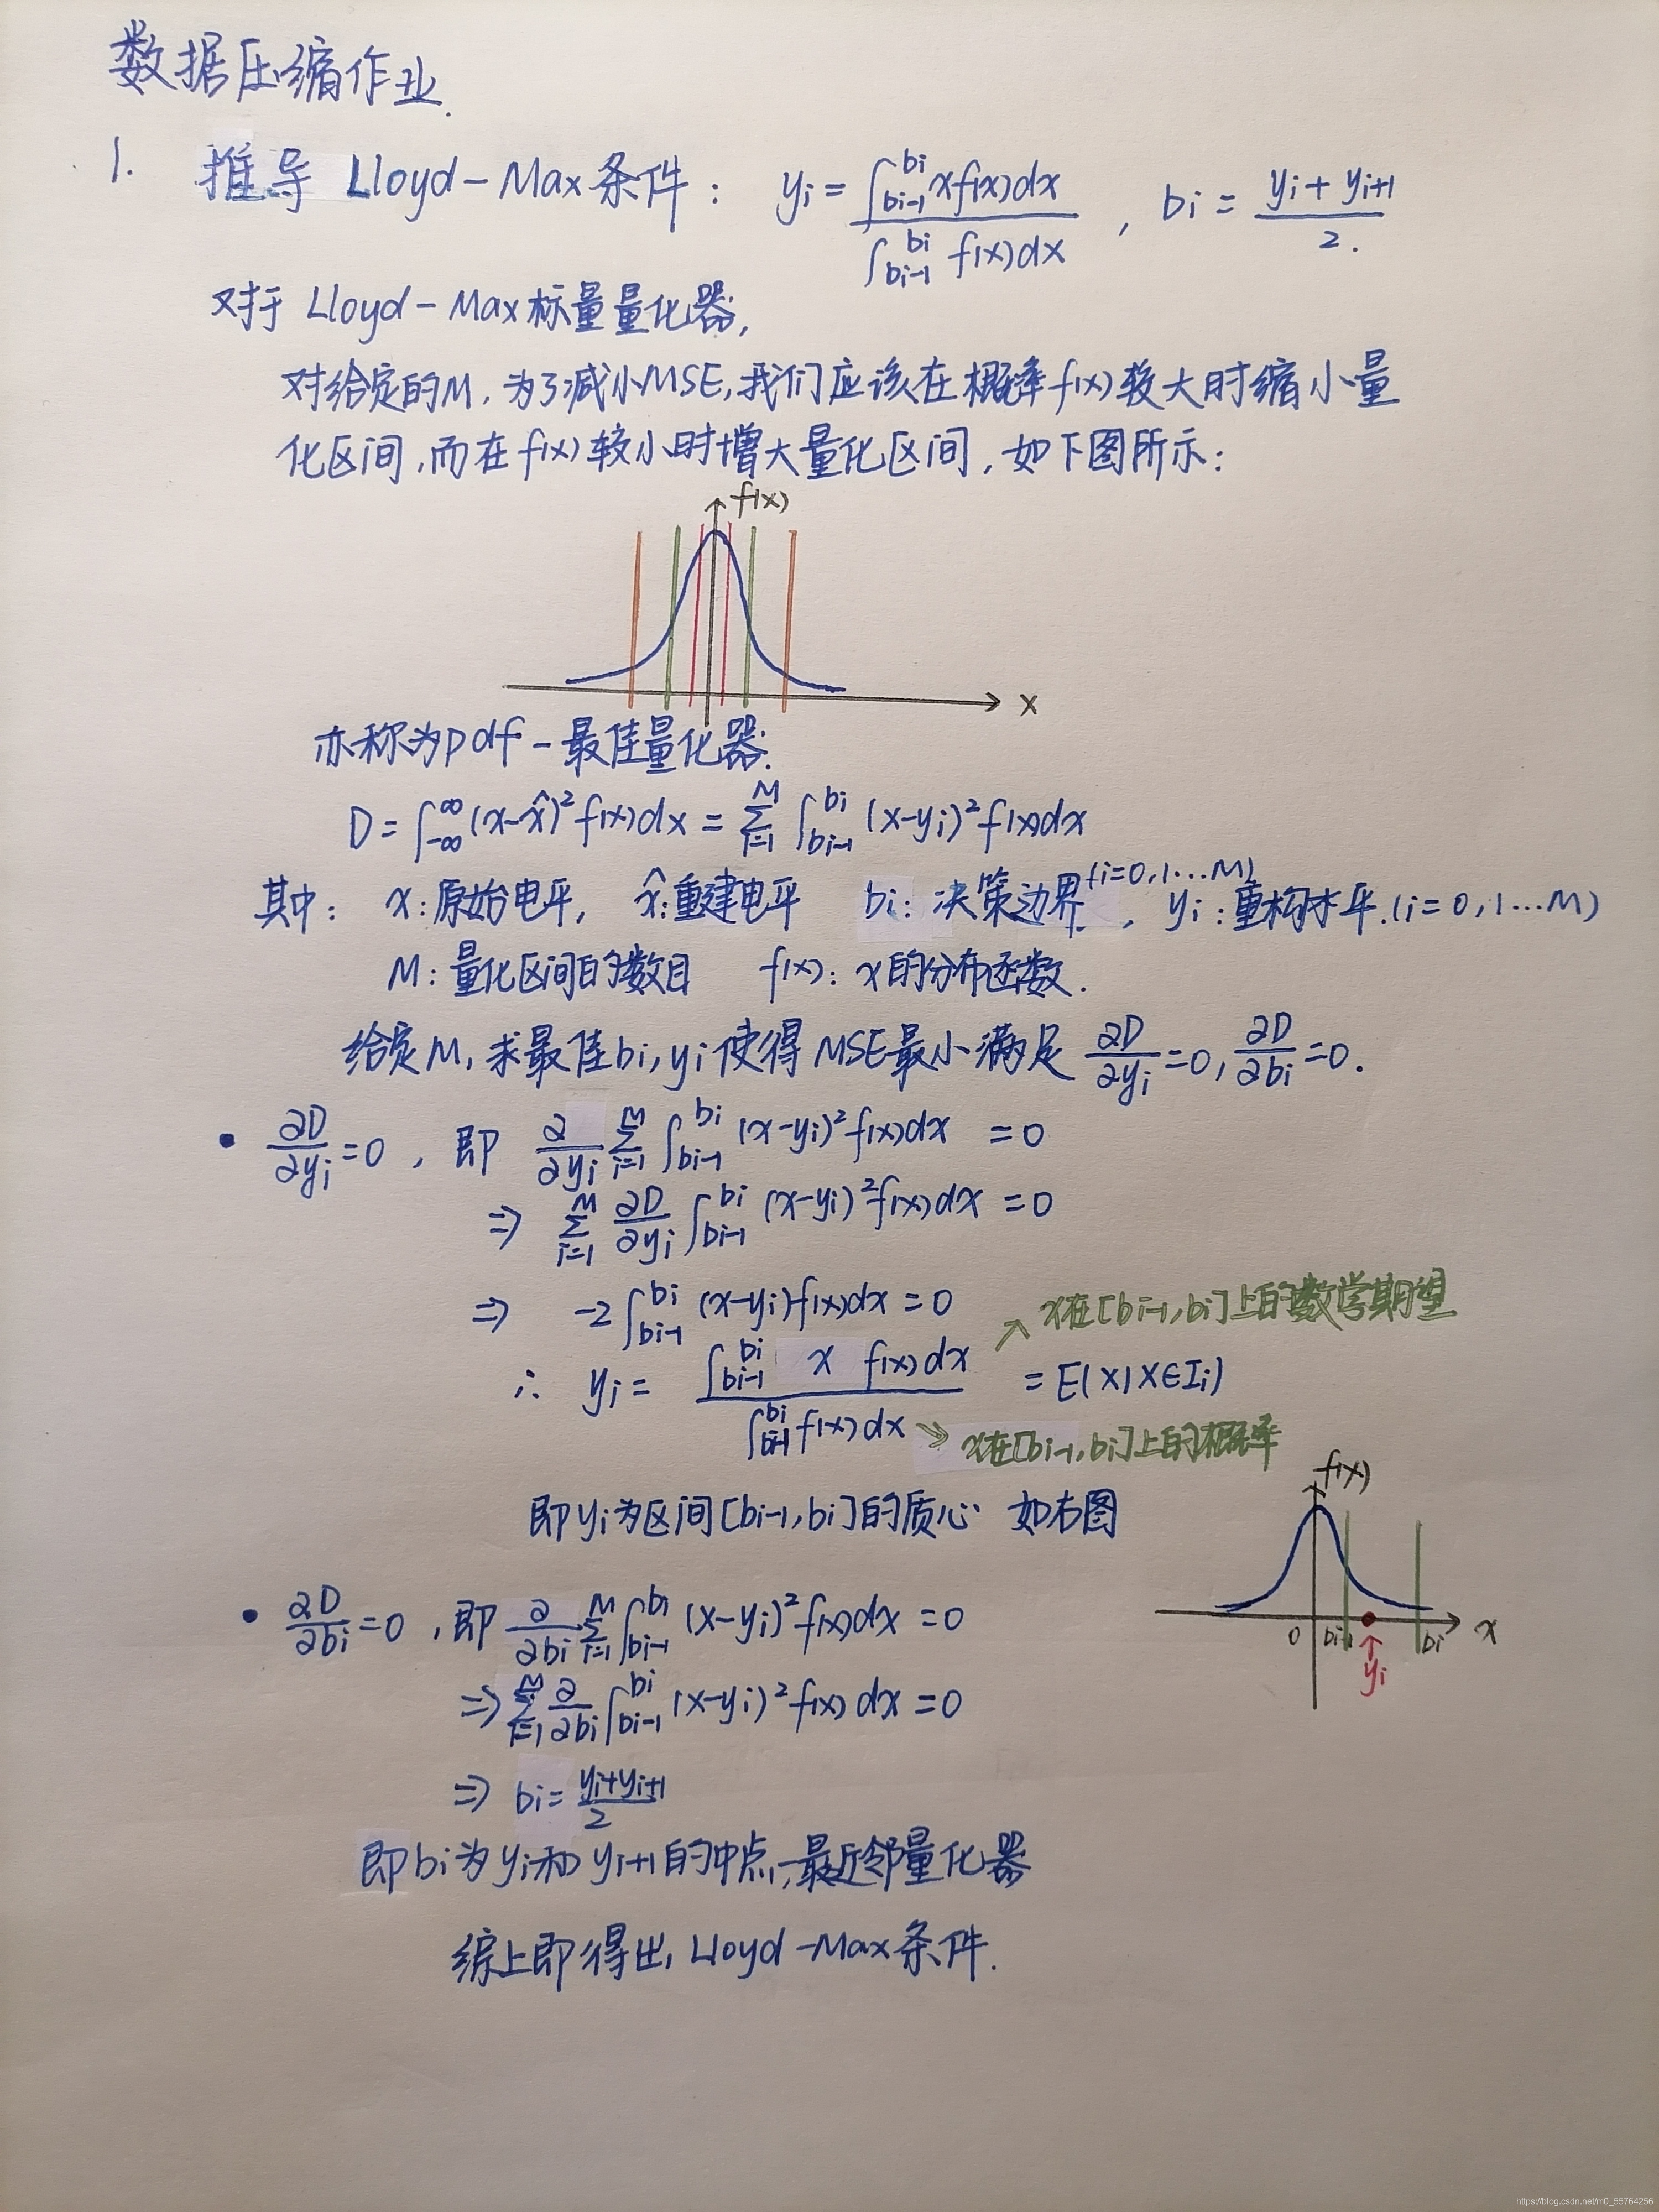 数据压缩作业.
1. 推导 Lloyd-Max条件: yi = ∫_{bi-1}^{bi} xf(x)dx / ∫_{bi-1}^{bi} f(x)dx , bi = (yi + yi+1) / 2.
对于 Lloyd-Max标量量化器,
对给定的M, 为了减小MSE, 我们应该在概率f(x)较大时缩小量
化区间, 而在f(x)较小时增大量化区间, 如下图所示:
f(x)
x
亦称为pdf-最佳量化器.
D = ∫_{-∞}^{∞} (x-x̂)² f(x)dx = Σ_{i=1}^{M} ∫_{bi-1}^{bi} (x-yi)² f(x)dx
其中: x:原始电平, x̂:重建电平 bi: 决策边界(i=0,1...M), yi:重构水平.(i=0,1...M)
M:量化区间的数目 f(x): x的分布函数.
给定M, 求最佳bi, yi使得MSE最小满足 ∂D/∂yi = 0, ∂D/∂bi = 0.
• ∂D/∂yi = 0, 即 ∂/∂yi Σ_{i=1}^{M} ∫_{bi-1}^{bi} (x-yi)² f(x)dx = 0
⇒ Σ_{i=1}^{M} ∂D/∂yi ∫_{bi-1}^{bi} (x-yi)² f(x)dx = 0
⇒ -2∫_{bi-1}^{bi} (x-yi)f(x)dx = 0
↗ x在[bi-1,bi]上的数学期望
∴ yi = ∫_{bi-1}^{bi} x f(x)dx / ∫_{bi-1}^{bi} f(x)dx = E(X|X∈Ii)
→ x在[bi-1,bi]上的概率
即yi为区间[bi-1,bi]的质心 如右图
f(x)
0 bi-1 bi x
yi
• ∂D/∂bi = 0, 即 ∂/∂bi Σ_{i=1}^{M} ∫_{bi-1}^{bi} (x-yi)² f(x)dx = 0
⇒ Σ_{i=1}^{M} ∂/∂bi ∫_{bi-1}^{bi} (x-yi)² f(x)dx = 0
⇒ bi = (yi+yi+1) / 2
即bi为yi和yi+1的中点, 最近邻量化器
综上即得出, Lloyd-Max条件.
https://blog.csdn.net/m0_55764256